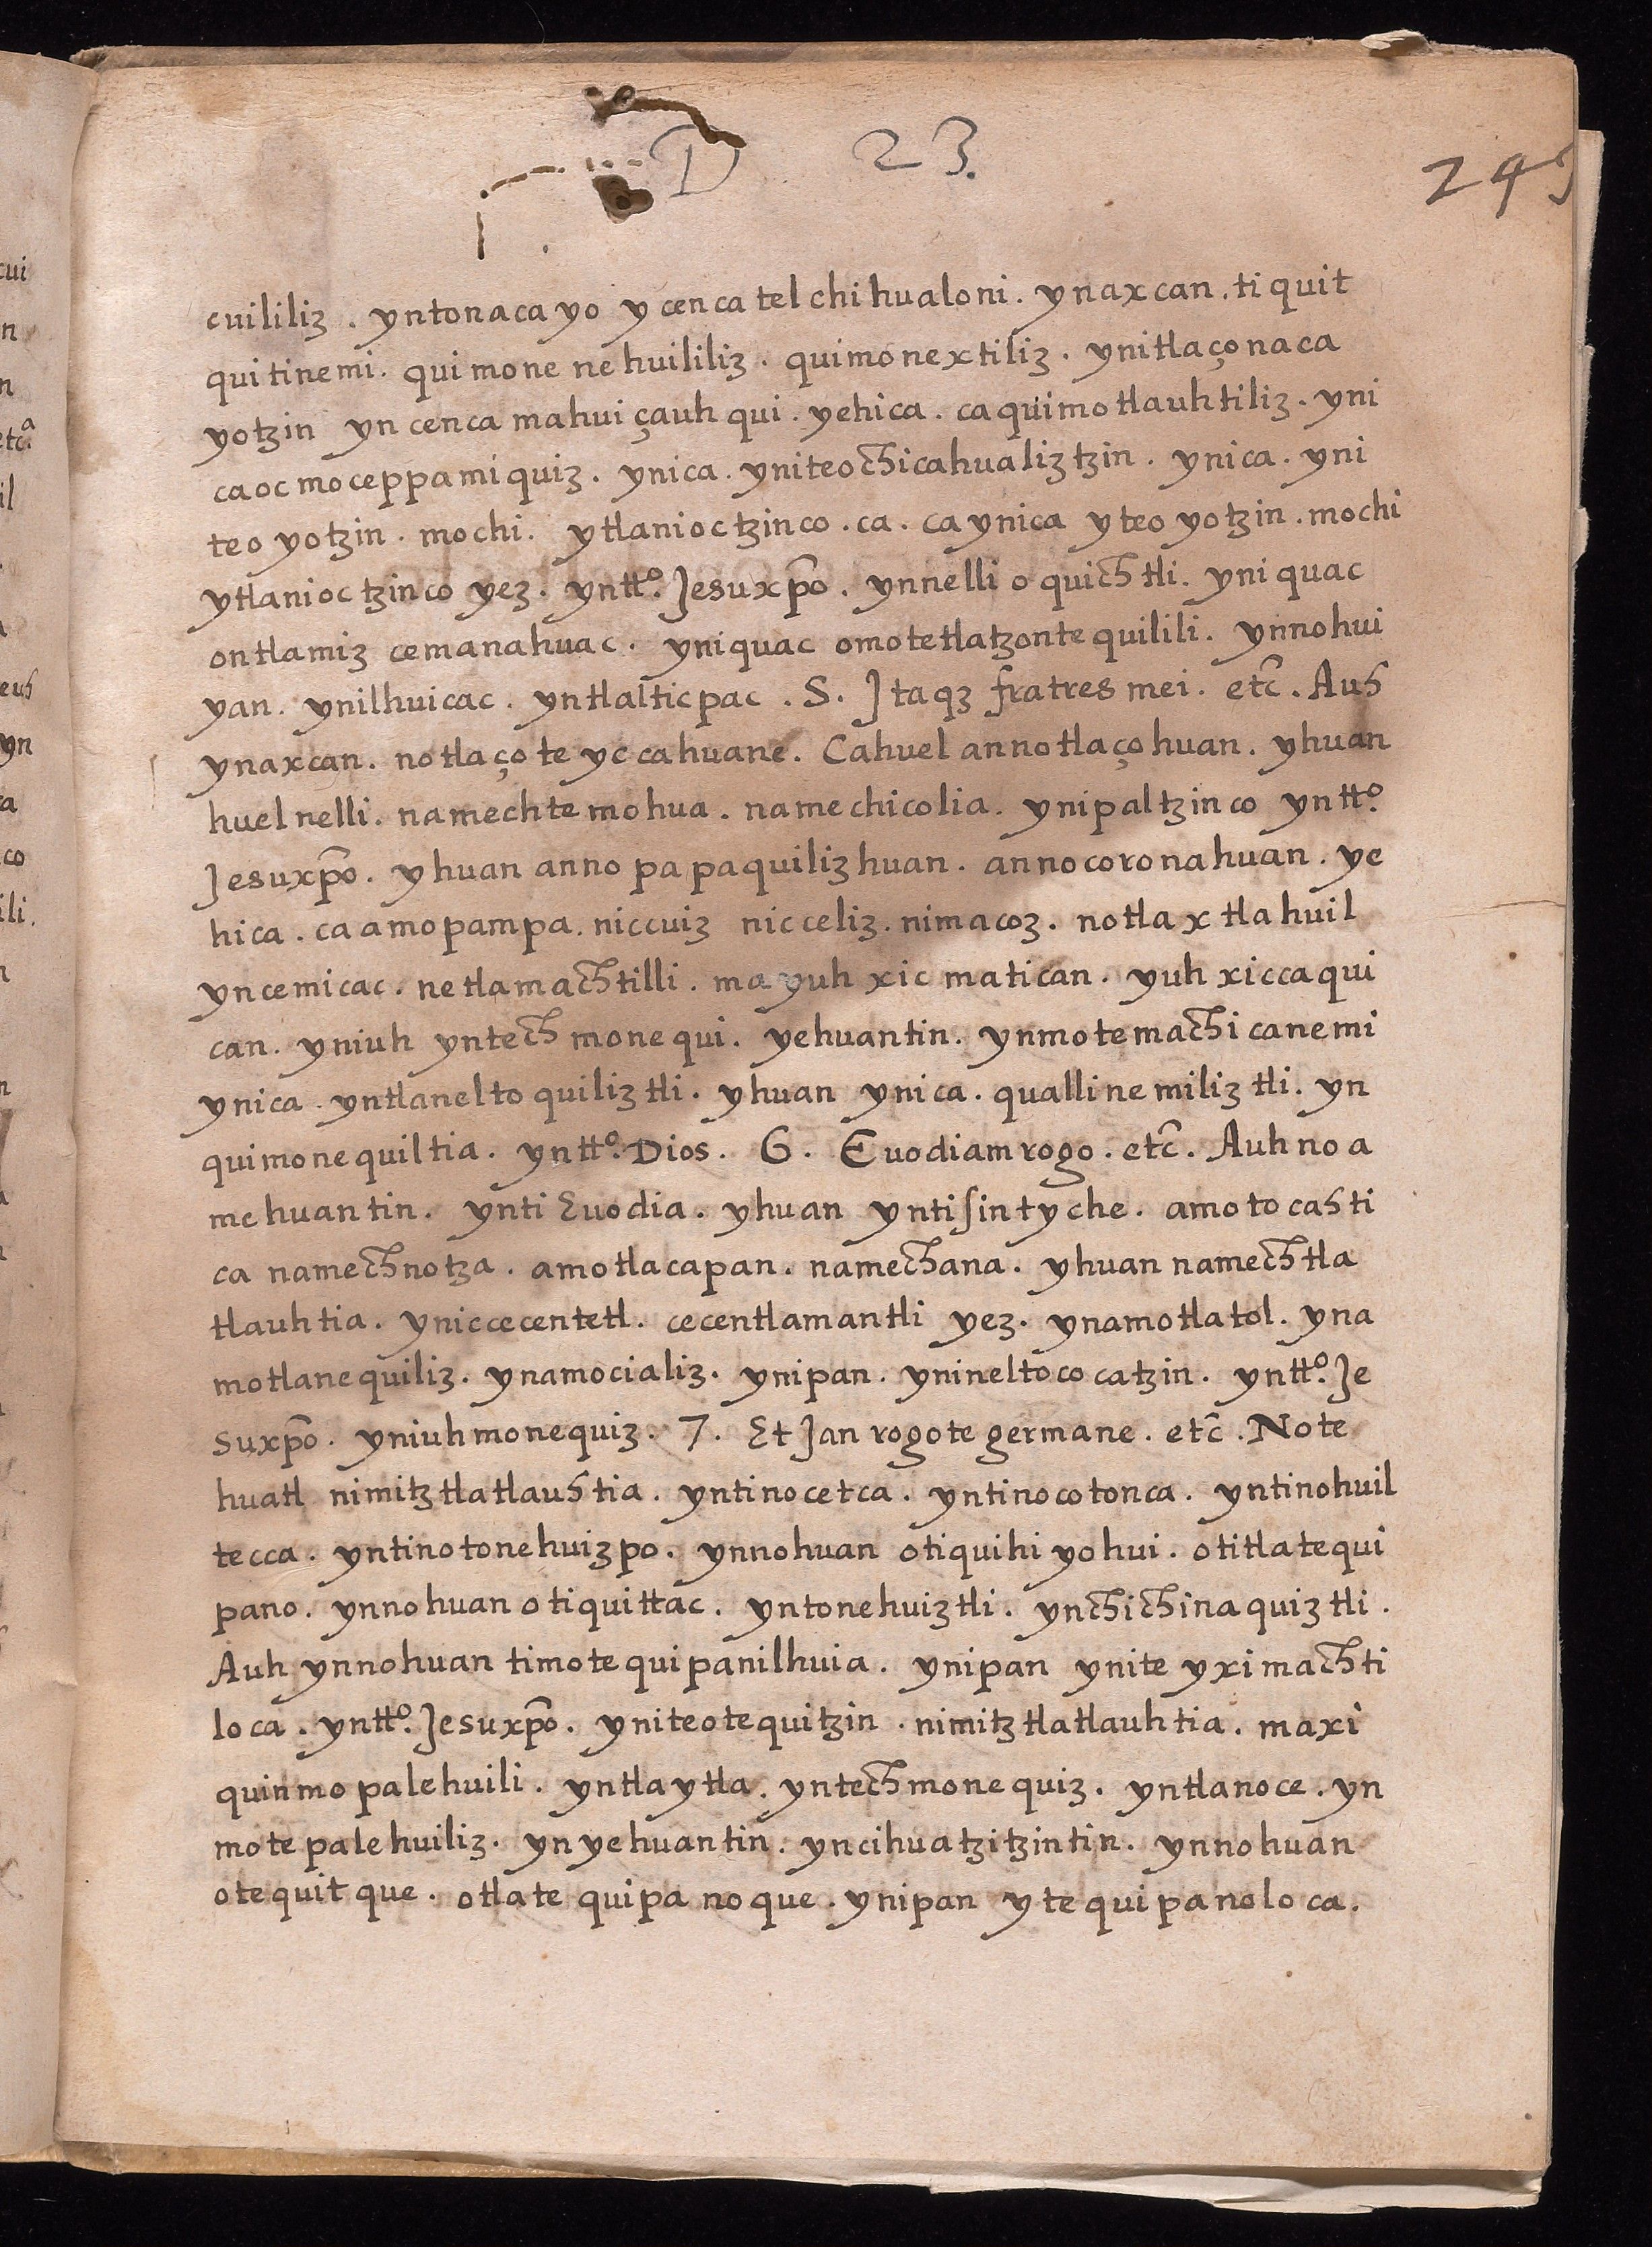 D 23.
245
cuililiz. yntonacayo ycenca telchihualoni. ynaxcan. tiquit
quitinemi. quimonenehuililiz. quimonextiliz. ynitlaçonaca
yotzin yn cenca mahuiçauhqui. yehica. ca quimotlauhtiliz. yni
caocmoceppamiquiz. ynica. yniteochicahualiztzin. ynica. yni
teoyotzin. mochi. ytlanioctzinco. ca. ca ynica yteoyotzin. mochi
ytlanioctzinco yez. yntt͞o. Jesuxp͞o. ynnelli oquichtli. yniquac
ontlamiz cemanahuac. yniquac omotetlatzontequilili. ynnohui
yan. ynilhuicac. yntlalticpac. S. Itaqꝫ fratres mei. etc̄. Auh
ynaxcan. notlaçoteyccahuane. Cahuel annotlaçohuan. yhuan
huel nelli. namechtemohua. namechicolia. ynipaltzinco yntt͞o.
Jesuxp͞o. yhuan annopapaquilizhuan. annocoronahuan. ye
hica. ca amopampa. niccuiz nicceliz. nimacoz. notlaxtlahuil
yncemicac. netlamachtilli. mayuh xicmatican. yuh xiccaqui
can. yniuh yntech monequi. yehuantin. ynmotemachicanemi
ynica. yntlaneltoquiliztli. yhuan ynica. quallinemiliztli. yn
quimonequiltia. yntt͞o. Dios. 6. Euodiam rogo. etc̄. Auh no a
mehuantin. ynti Euodia. yhuan yntisintyche. amotocasti
ca namechnotza. amotlacapan. namechana. yhuan namechtla
tlauhtia. yniccecentetl. cecentlamantli yez. ynamotlatol. yna
motlanequiliz. ynamocializ. ynipan. ynineltococatzin. yntt͞o. Je
suxp͞o. yniuhmonequiz. 7. Et Jan rogo te germane. etc̄. No te
huatl nimitztlatlaustia. yntinocetca. yntinocotonca. yntinohuil
tecca. yntinotonehuizpo. ynnohuan otiquihiyohui. otitlatequi
pano. ynnohuan otiquittac. yntonehuiztli. ynchichinaquiztli.
Auh ynnohuan timotequipanilhuia. ynipan yniteyximachti
loca. yntt͞o. Jesuxp͞o. yniteotequitzin. nimitztlatlauhtia. maxi
quinmopalehuili. yntlaytla. yntechmonequiz. yntlanoce. yn
motepalehuiliz. ynyehuantin. yncihuatzitzintin. ynnohuan
otequitque. otlatequipanoque. ynipan ytequipanoloca.